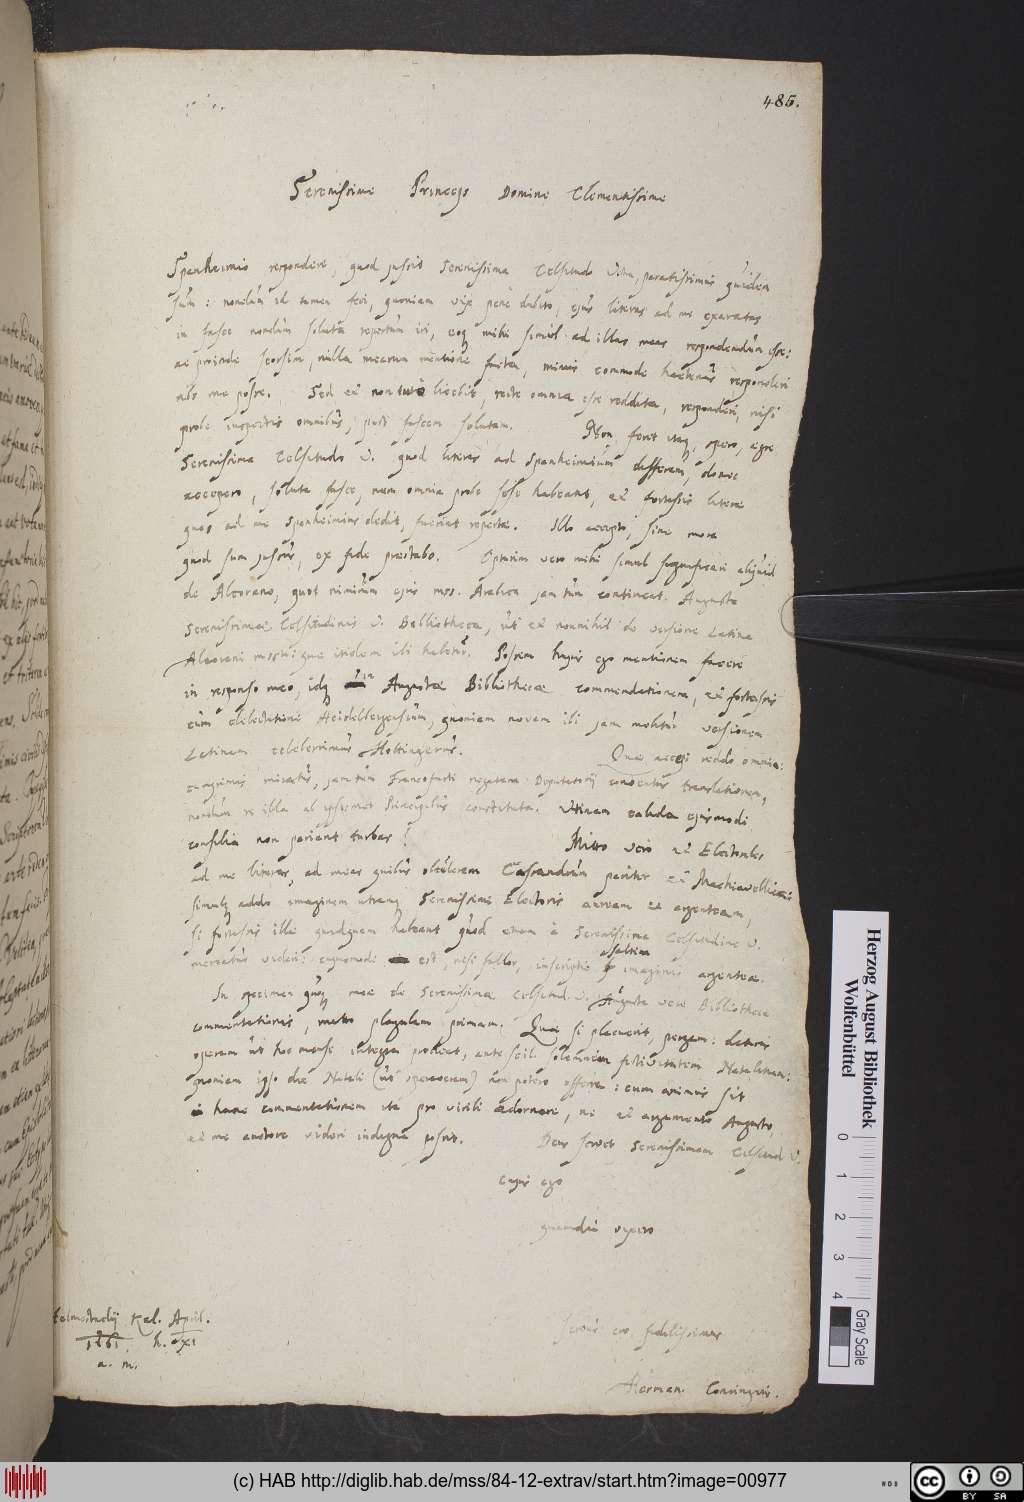 485.
Serenissime Princeps Domine Clementissime
Spanhemio respondere, quod jussit Serenissima Celsitudo Vra, paratissimus quidem
sum: nondum id tamen feci, quoniam vix pene dubito, ejus literas ad me exaratas
in fasce nondum soluto repertum iri, eoq mihi simul ad illas meas respondendum esse:
ac proinde seorsim, nulla mearum mentione facta, minus commode hactenus responderi
abs me posse. Sed et non tuto licebit, recte omnia esse reddita, responderi, nisi
probe inspectis omnibus, post fascem solutum. Non foret itaq, spero, aegre
Serenissima Celsitudo V. quod literas ad Spanhemium differam, donec
accepero, soluto fasce, num omnia probe sese habeant, et fortassis literae
quas ad me Spanhemius dedit, fuerint repertae. Illo accepto, sine mora
quod sum jussus, ex fide praestabo. Optarim vero mihi simul significari aliquid
de Alcorano, quot nimirum ejus mss. Arabica jam tum contineat Augusta
Serenissimae Celsitudinis V. Bibliotheca, ut et nonnihil de versione Latina
Alcorani siquidem ibi habetur. Possem hujus ego mentionem facere
in responso meo, idq in Augustae Bibliothecae commendationem, et fortassis
cum delectatione Heidelbergensium, quoniam novam ibi jam molitur versionem
Latinam celeberrimus Hottingerus. Quae accepi reddo omnia:
miratus, jam tum Francofurti negatam Deputatorij conventus translationem,
nondum re illa ab ipsismet Principibus constituta. Utinam calida ejusmodi
consilia non pariant turbas! Mitto vero et Electorales
ad me literas, ad meas quibus obtuleram Cassandrum pariter et Machiavellum:
simulq addo imaginem utramq Serenissimi Electoris auream et argenteam,
si fortassis illae quidquam habeant quod etiam a Serenissima Celsitudine V.
mereatur videri: cujusmodi est, nisi fallor, inscriptio saltim imaginis argenteae.
In specimen quoq meae de Serenissimae Celsitud. V. Augusta vere Bibliotheca
commentationis, mitto plagulam primam. Quae si placuerit, pergam: daturus
operam ut hoc mense integra prodeat, ante scil. solennem festivitatem Natalitiam:
quoniam ipso die Natali (uti speraveram) non potero offerre: cum animus sit
hanc commentationem ita pro virili adornare, ne et argumento Augusto,
et me auctore videri indigna possit. Deus servet Serenissimam Celsitud. V.
cujus ego
quamdiu vixero
servus ero fidelissimus
Herman. Conringius.
Helmestadij Kal. April.
1661. h. XI
a. m.
Herzog August Bibliothek
Wolfenbüttel
0 1 2 3 4
Gray Scale
(c) HAB http://diglib.hab.de/mss/84-12-extrav/start.htm?image=00977
WDB
cc BY SA